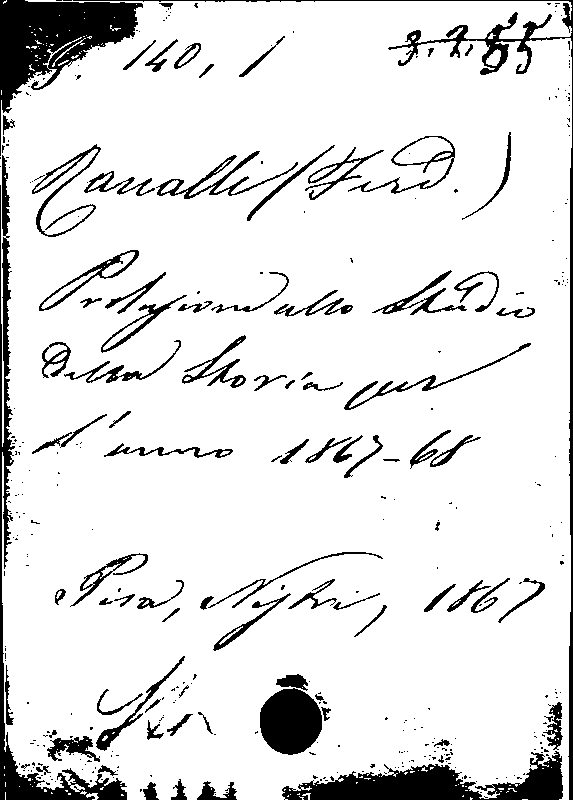 G. 140, 1
3. 2. 85
Ranalli (Ferd.)
Prolusione allo Studio
della Storia per
l'anno 1867-68
Pisa, Nistri, 1867